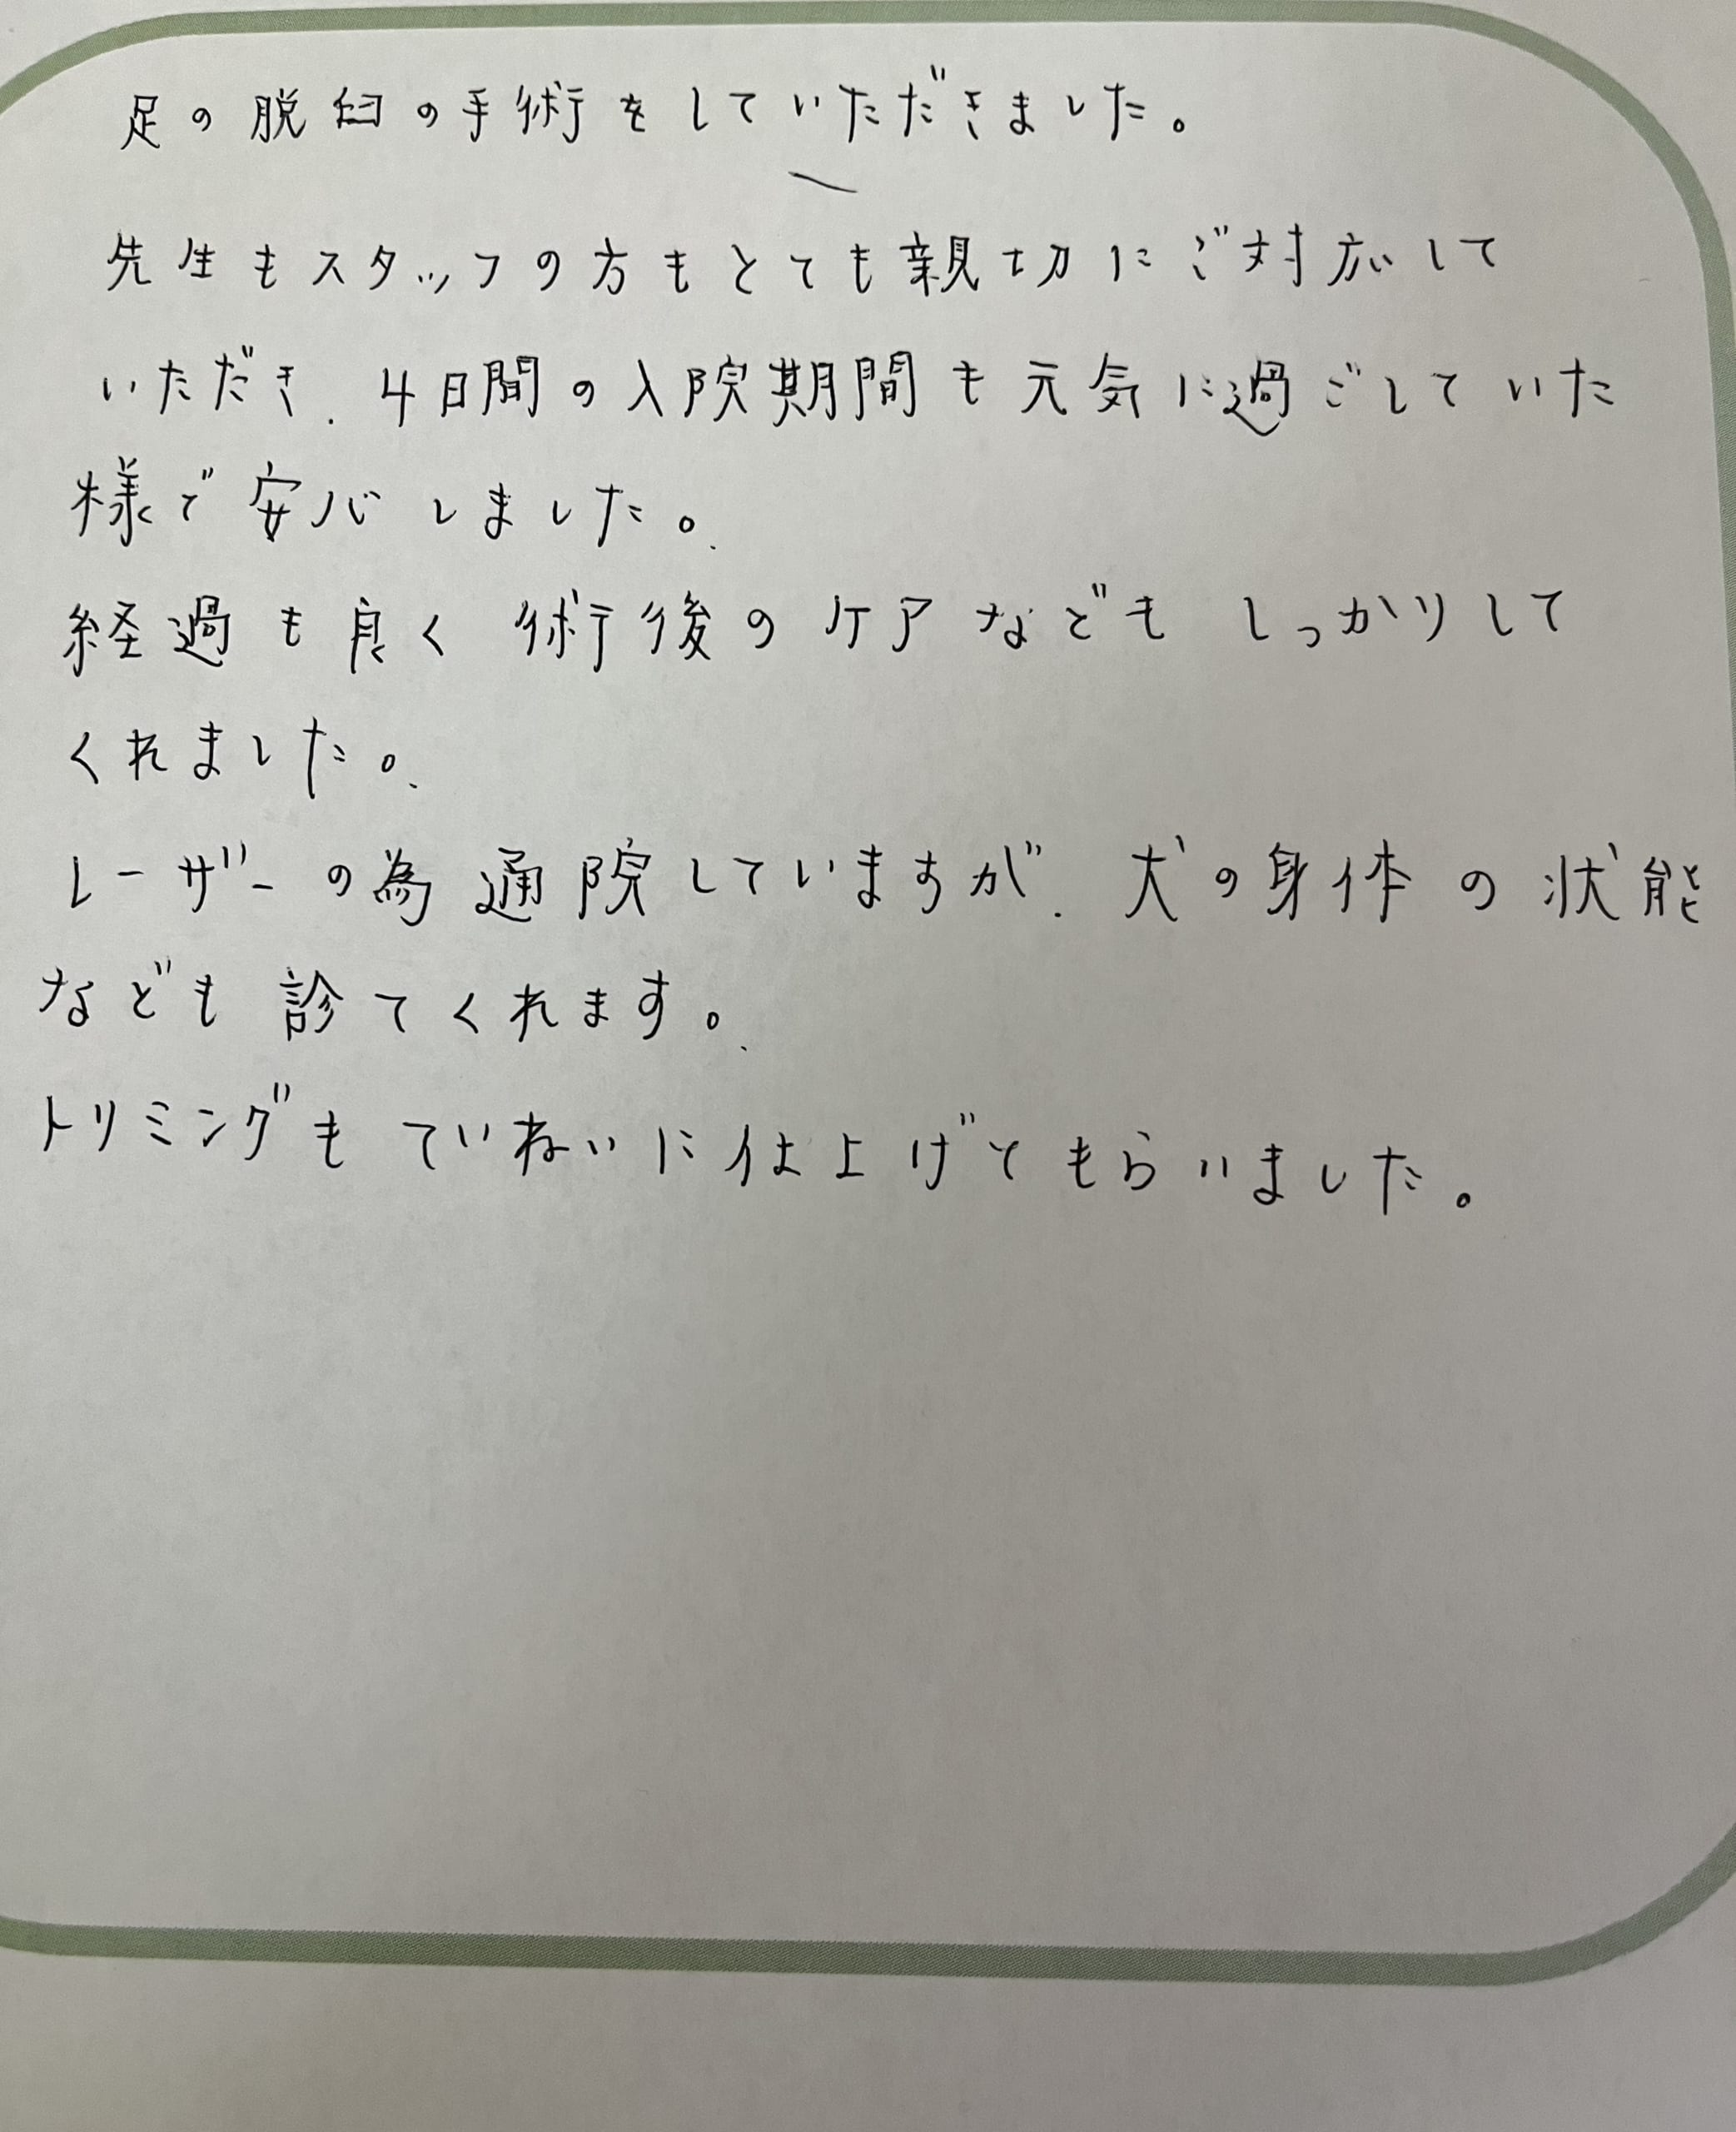 足の脱臼の手術をしていただきました。
先生もスタッフの方もとても親切にご対応して
いただき、4日間の入院期間も元気に過ごしていた
様で安心しました。
経過も良く術後のケアなどもしっかりして
くれました。
レーザーの為通院していますが、犬の身体の状態
なども診てくれます。
トリミングもていねいに仕上げてもらいました。